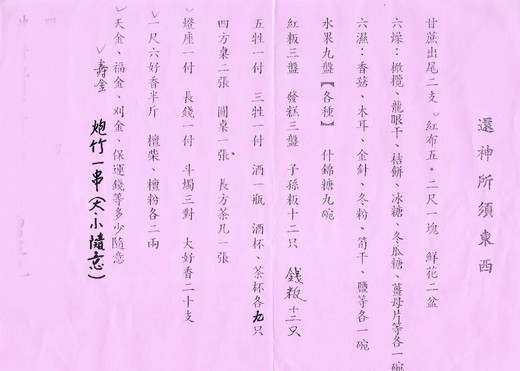 還神所須東西
甘蔗出尾二支、紅布五·二尺一塊 鮮花二盆
六燥：橄欖、龍眼干、桔餅、冰糖、冬瓜糖、薑母片等各一碗
六濕：香菇、木耳、金針、冬粉、筍干、鹽等各一碗
水果九盤【各種】 什錦糖九碗
紅粄三盤 發糕三盤 子孫粄十二只 錢粄十二只
五牲一付 三牲一付 酒一瓶 酒杯、茶杯各九只
四方桌二張 圓桌一張、長方茶几一張
燈座一付 長錢一付 斗燭三對 大好香二十支
一尺六好香半斤 檀柴、檀粉各二兩
天金、福金、刈金、保運錢等多少隨意
壽金 炮竹一串(大·小隨意)